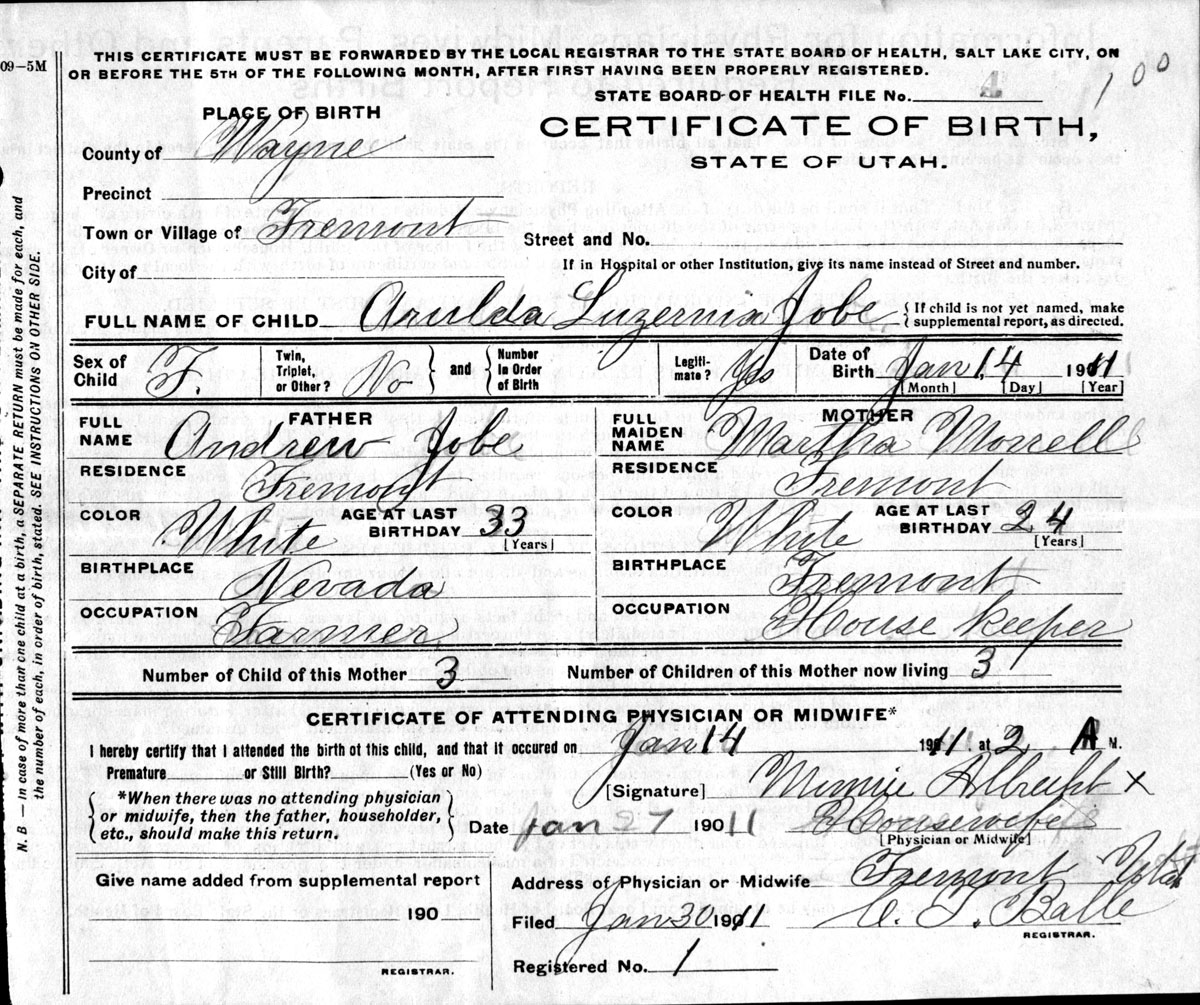 09–5M
THIS CERTIFICATE MUST BE FORWARDED BY THE LOCAL REGISTRAR TO THE STATE BOARD OF HEALTH, SALT LAKE CITY, ON
OR BEFORE THE 5TH OF THE FOLLOWING MONTH, AFTER FIRST HAVING BEEN PROPERLY REGISTERED.
100
STATE BOARD OF HEALTH FILE No. 4
PLACE OF BIRTH
CERTIFICATE OF BIRTH,
STATE OF UTAH.
County of Wayne
Precinct
Town or Village of Fremont
Street and No.
City of
If in Hospital or other Institution, give its name instead of Street and number.
FULL NAME OF CHILD Arulda Luzernia Jobe
{ If child is not yet named, make
supplemental report, as directed.
Sex of Child F.
Twin, Triplet, or Other? No } and { Number in Order of Birth
Legiti-mate? Yes
Date of Birth Jan 14 1911
[Month] [Day] [Year]
FATHER
FULL NAME Andrew Jobe
RESIDENCE Fremont
COLOR White AGE AT LAST BIRTHDAY 33
[Years]
BIRTHPLACE Nevada
OCCUPATION Farmer
MOTHER
FULL MAIDEN NAME Martha Morrell
RESIDENCE Fremont
COLOR White AGE AT LAST BIRTHDAY 24
[Years]
BIRTHPLACE Fremont
OCCUPATION House Keeper
Number of Child of this Mother 3 Number of Children of this Mother now living 3
CERTIFICATE OF ATTENDING PHYSICIAN OR MIDWIFE*
I hereby certify that I attended the birth ot this child, and that it occured on Jan 14 1911 at 2 A M.
Premature or Still Birth? (Yes or No)
{ *When there was no attending physician
or midwife, then the father, householder,
etc., should make this return. }
[Signature] Minnie x
Date Jan 27 1911 Housewife
[Physician or Midwife]
Give name added from supplemental report
190
REGISTRAR.
Address of Physician or Midwife Fremont Utah
Filed Jan 30 1911 C. T. Balle
REGISTRAR.
Registered No. 1
N. B — In case of more than one child at a birth, a SEPARATE RETURN must be made for each, and
the number of each, in order of birth, stated. SEE INSTRUCTIONS ON OTHER SIDE.